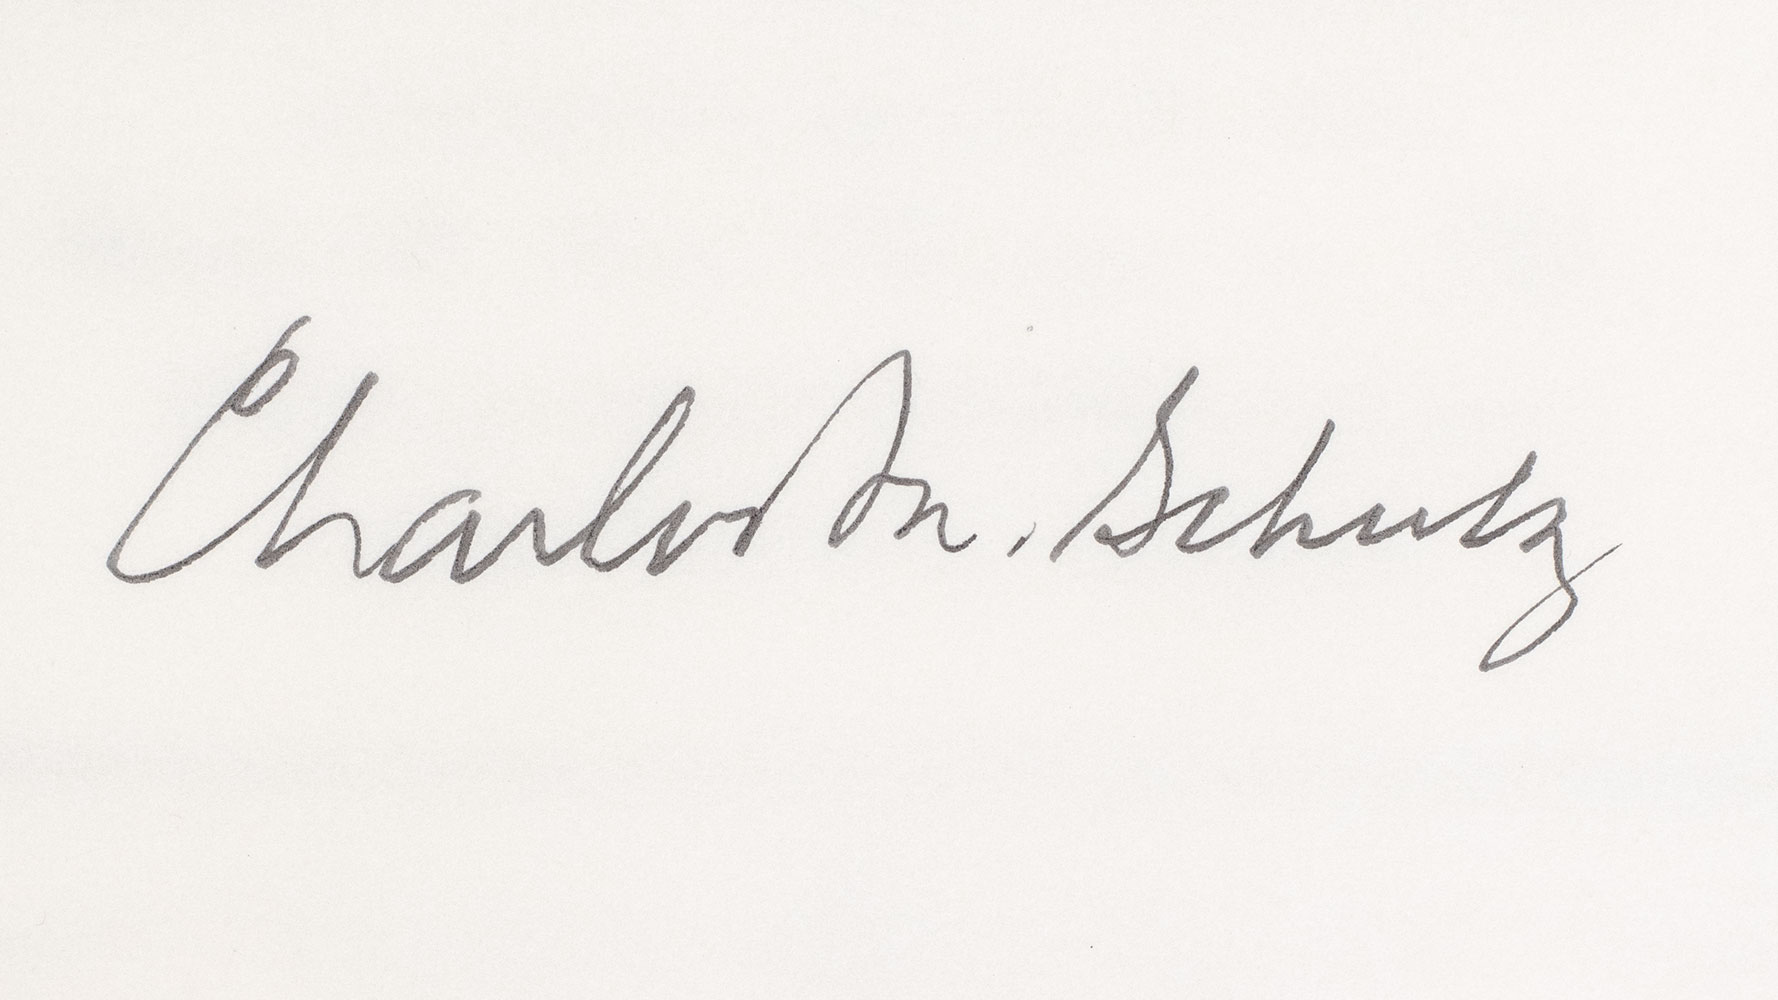 Charles M. Schulz